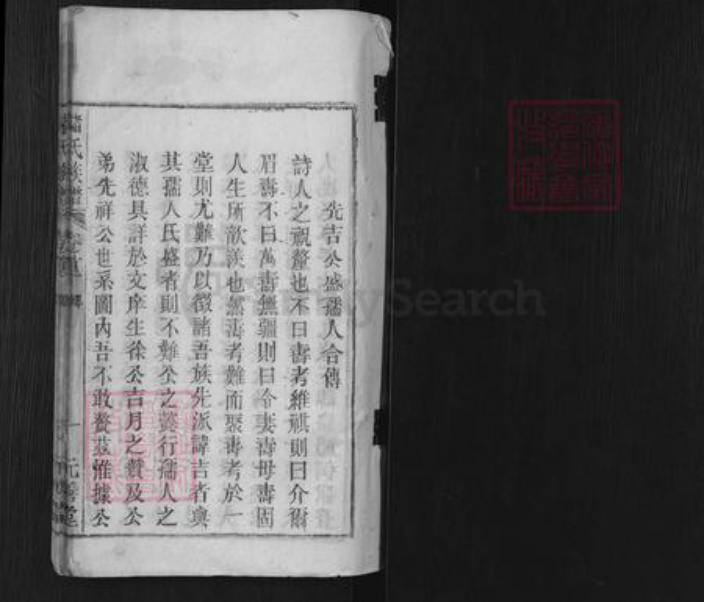 先吉公盛孺人合傳
詩人之祝釐也不曰壽考維祺則曰介爾
眉壽不曰萬壽無疆則曰令妻壽母壽固
人生所歆羨也然壽考難而聚壽考於一
堂則尤難乃以徵諸吾族先派諱吉者與
其孺人氏盛者則不難公之懿行孺人之
淑德具詳於文庠生徐公吉月之贊及公
弟先祥公也系圖內吾不敢贅茲惟據公
氏族譜
傳
一
元善堂
FamilySearch